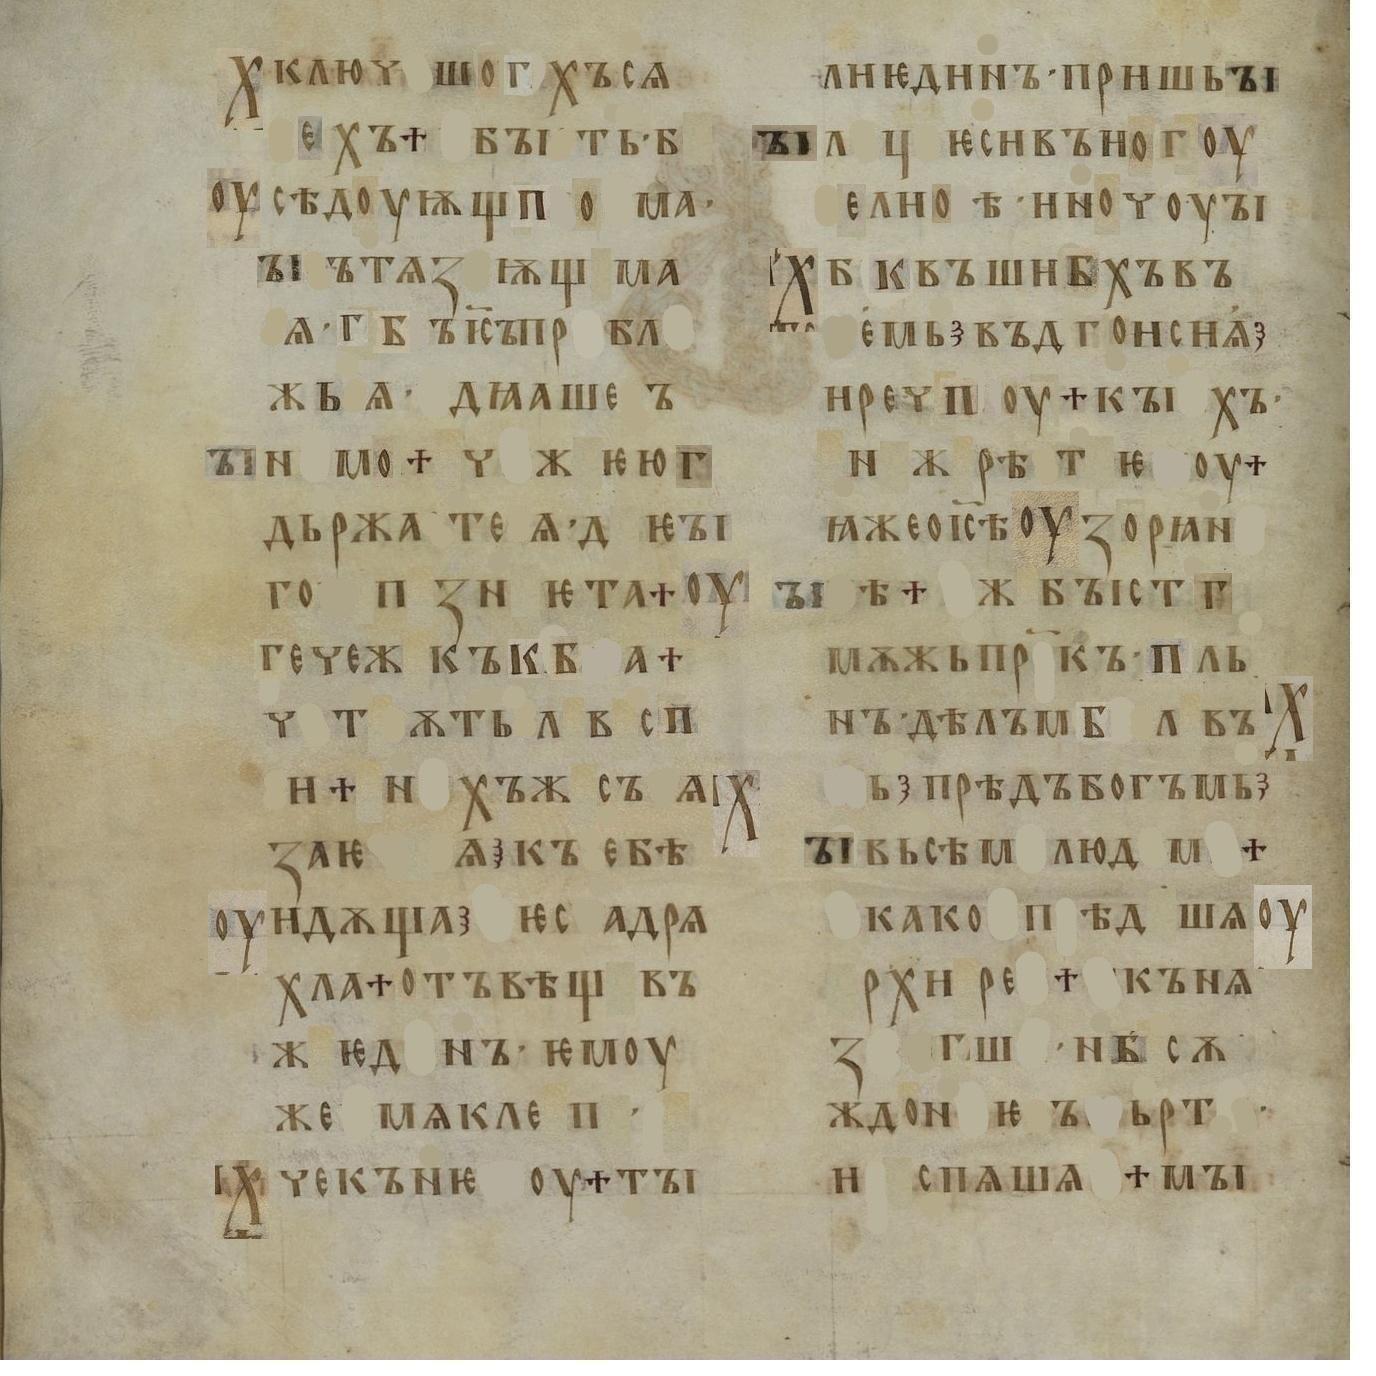 хклюꙋ шог хъсѧ
е хъ+ бꙑ ть·б
оусѣдоуѭщп о ма·
ꙑ ътѧꙁ ѭщ ма
ѧ·г б ъі҃съпр бл
жь ѧ· дꙗаше ъ
ꙑн мо+ ч ж ѥюг
дьржа те ѧ·д ѥꙑ
го п ꙁн ѥта+оу
гечеж къкб а+
ч т ѫть л в сп
н+ н хъж съ ѧх
ꙁаѥ ѧꙁкъ ебѣ
оундѫщаꙁ ѥс адрѧ
хла+отъвѣщ въ
ж ѥд нъ· ѥмоу
же мѧкле п ·
хчекънѥ оу+тꙑ
лнѥдннъ·пришьꙑ
ꙑл ц ѥснвъног оу
елно ѣ·нночоуꙑ
хб квъшнбхъвъ
емьꙁвъд гонснѧꙁ
нречп оу+кꙑ хъ·
н ж рѣ т ѥ оу+
ꙗжеоі҃сѣоуꙁорꙗн
ꙑ ѣ+ ж бꙑст г
мѫжьпр къ·п ль
нъ·дѣлъмб л въх
ьꙁпрѣдъбогъмьꙁ
ꙑвьсѣм люд м +
како п ѣд шѧоу
рхн ре + кънѧ
ꙁ г ш ·нб сѫ
ждон ѥ ъ ьрт ·
н спѧша +мꙑ